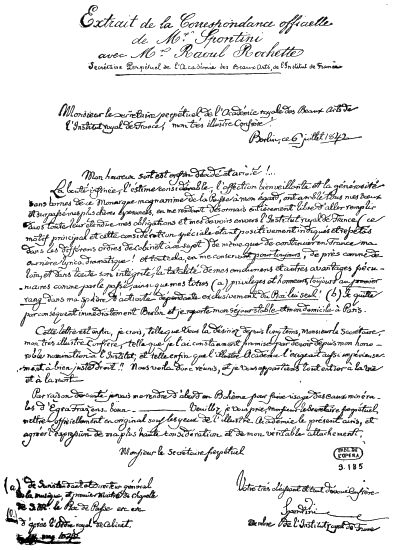 Extrait de la Correspondance officielle
de Mr. Spontini
avec Mr. Raoul Rochette
Secrétaire Perpétuel de l'Académie des Beaux Arts, de l'Institut de France
Monsieur le secrétaire perpétuel de l'Académie royale des Beaux Arts de
l'Institut royal de France, mon très illustre Confrère,
Berlin, ce 6 juillet 1842
Mon heureux sort est enfin décidé et arrêté !...
La bonté infinie, l'estime considérable, l'affection bienveillante et la générosité
sans bornes de ce Monarque magnanime de la Prusse à mon égard, ont comblé tous mes vœux
et surpassé mes plus chères espérances, en me rendant désormais entièrement libre d'aller remplir
dans toute leur étendue mes obligations et mes devoirs envers l'Institut royal de France, ce
motif principal et cette considération spéciale étant positivement indiqués et répétés
dans les différents ordres de Cabinet à ce sujet
carrière lyrico-dramatique ! Et tout cela, en me conservant pour toujours, de près comme de
loin, et dans toute son intégrité, la totalité de mes émoluments et autres avantages pécu-
niaires comme par le passé, ainsi que mes titres (a) privilèges et honneurs, toujours au premier
rang dans ma sphère d'activité dépendante exclusivement du Roi lui seul ! (b) Je quitte
par conséquent immédiatement Berlin et je reporte mon séjour stable et mon domicile à Paris.
Cette lettre est enfin, je crois, telle que Vous la désiriez depuis longtems, Monsieur le Secrétaire,
mon très illustre Confrère, telle que je l'ai constamment promise par devoir depuis mon hono-
rable nomination à l'Institut, et telle enfin que l'illustre Académie l'exigeait
Nous voilà donc réunis, et je vous appartiens tout entier à la vie
et à la mort.
Par raison de santé je vais me rendre d'abord en Bohème pour faire usage des eaux minéra-
les d'Egra Franzens-bain Veuillez, je vous prie, Monsieur le Secrétaire perpétuel,
mettre officiellement en original sous les yeux de l'illustre Académie le présent avis, et
agréer l'expression de ma plus haute considération et de mon véritable attachement,
Monsieur le Secrétaire perpétuel
BIBL. DE L'OPERA
S.185
Votre très dévoué Confrère
Spontini
Membre de l'Institut royal de France
(a) de Surintendant et Directeur général
de la musique, et premier Maître de Chapelle
de S. M. le Roi de Prusse
(b) d'après l'Ordre royal de Cabinet